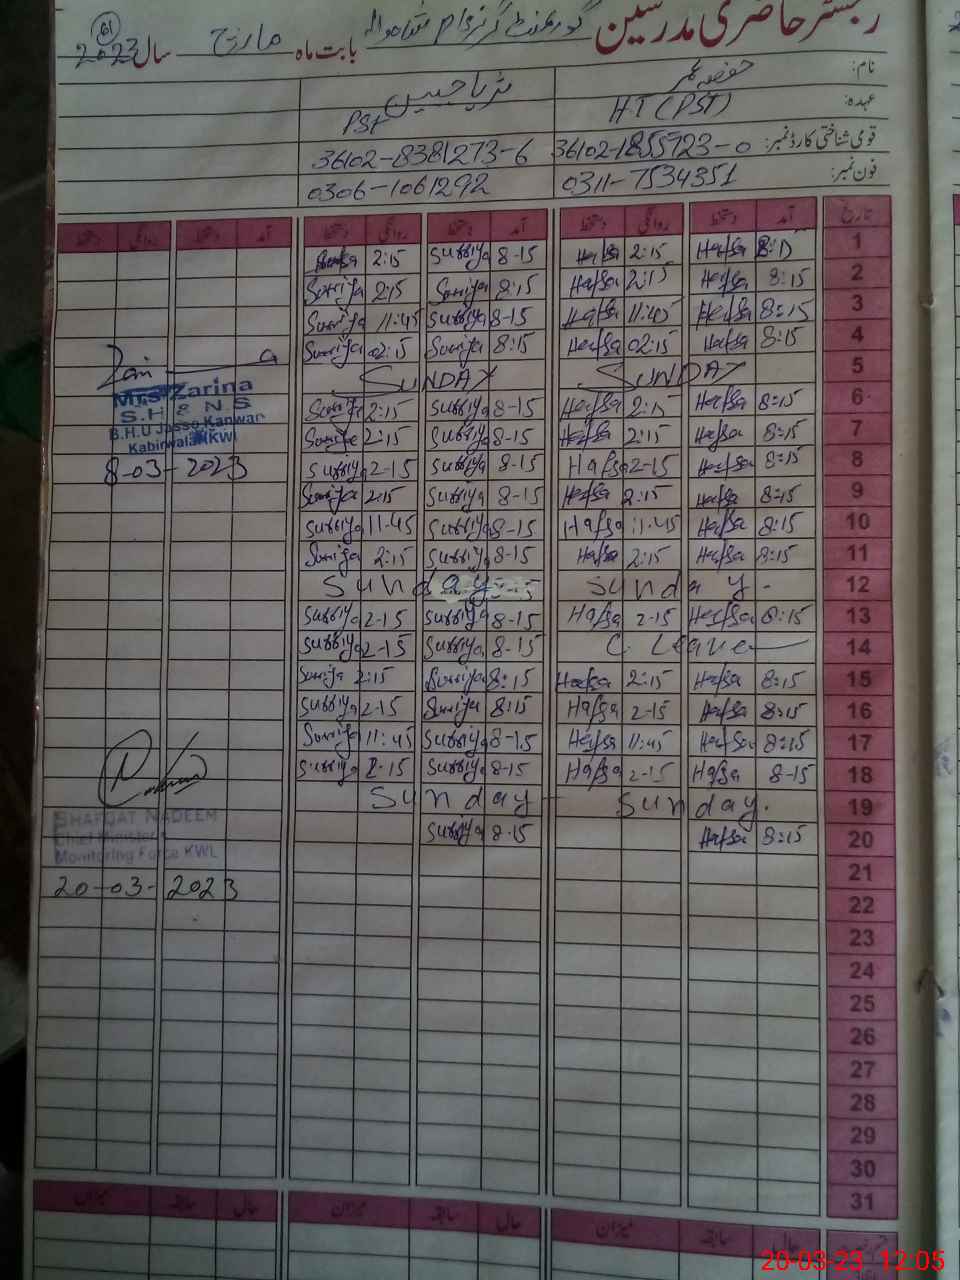 رجسٹر حاضری مدرسین گورنمنٹ گرلز بابت ماہ مارچ سال 2023 61
نام: حفصہ عمر ثریا جبین
عہدہ: H.T (PST) PST
قومی شناختی کارڈ نمبر: 36102-1855723-0 36102-8381273-6
فون نمبر: 0311-7534351 0306-1061292
تاریخ آمد دستخط روانگی دستخط آمد دستخط روانگی دستخط آمد دستخط روانگی دستخط
1 8:15 Hafsa 2:15 Hafsa 8-15 Surriya 2:15
2 8:15 Hafsa 2:15 Hafsa 8:15 Surriya 2:15 Surriya
3 8:15 Hafsa 11:45 Hafsa 8-15 Surriya 11:45 Surriya
4 8:15 Hafsa 02:15 Hafsa 8:15 Surriya 02:15 Surriya
5 SUNDAY SUNDAY
6 8:15 Hafsa 2:15 Hafsa 8-15 Surriya 2:15 Surriya
7 8:15 Hafsa 2:15 Hafsa 8-15 Surriya 2:15 Surriya
8 8:15 Hafsa 2-15 Hafsa 8-15 Surriya 2-15 Surriya
9 8:15 Hafsa 2:15 Hafsa 8-15 Surriya 2:15 Surriya
10 8:15 Hafsa 11:45 Hafsa 8-15 Surriya 11-45 Surriya
11 8:15 Hafsa 2:15 Hafsa 8-15 Surriya 2:15 Surriya
12 Sunday - Sunday
13 8:15 Hafsa 2-15 Hafsa 8-15 Surriya 2-15 Surriya
14 C. Leave 8-15 Surriya 2-15 Surriya
15 8:15 Hafsa 2:15 Hafsa 8:15 Surriya 2:15 Surriya
16 8:15 Hafsa 2-15 Hafsa 8:15 Surriya 2-15 Surriya
17 8:15 Hafsa 11:45 Hafsa 8-15 Surriya 11:45 Surriya
18 8-15 Hafsa 2-15 Hafsa 8-15 Surriya 2-15 Surriya
19 Sunday. Sunday
20 8:15 Hafsa 8-15 Surriya
21
22
23
24
25
26
27
28
29
30
31
Mrs Zarina
S.H & N.S
B.H.U Jasso Kanwar
Kabirwala KWL
8-03-2023
SHAFQAT NADEEM
Chief Minister's
Monitoring Force KWL
20-03-2023
حال سابقہ میزان حال سابقہ میزان حال سابقہ میزان
20-03-23 12:05